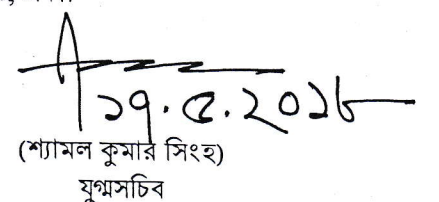 ১৭.৫.২০১৮
(শ্যামল কুমার সিংহ)
যুগ্মসচিব